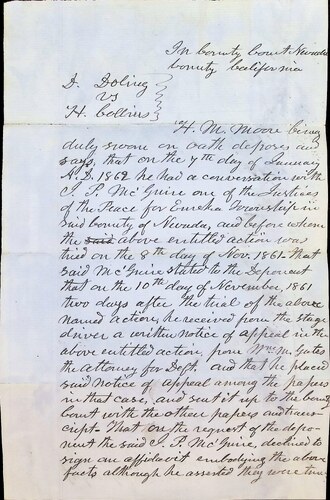 In County Court Nevada
County California
D. Doling
vs
H. Collins
H. M. Moore being
duly sworn on oath deposes and
says, that on the 7th day of January
A.D. 1862 he had a conversation with
J. P. McGuire one of the Justices
of the Peace for Eureka Township in
said County of Nevada, and before whom
the said above entitled action was
tried on the 8th day of Nov. 1861. That
said McGuire stated to the Deponent
that on the 10th day of November, 1861
two days after the trial of the above
named action, he received from the stage
driver a written notice of appeal in the
above entitled action, from Wm. M. Gates
the attorney for Deft, and that he placed
said notice of appeal among the papers
in that case, and sent it up to the County
Court with the other papers and trans-
cript. That on the request of the depo-
nent the said J. P. McGuire, declined to
sign an affidavit embodying the above
facts although he asserted they were true